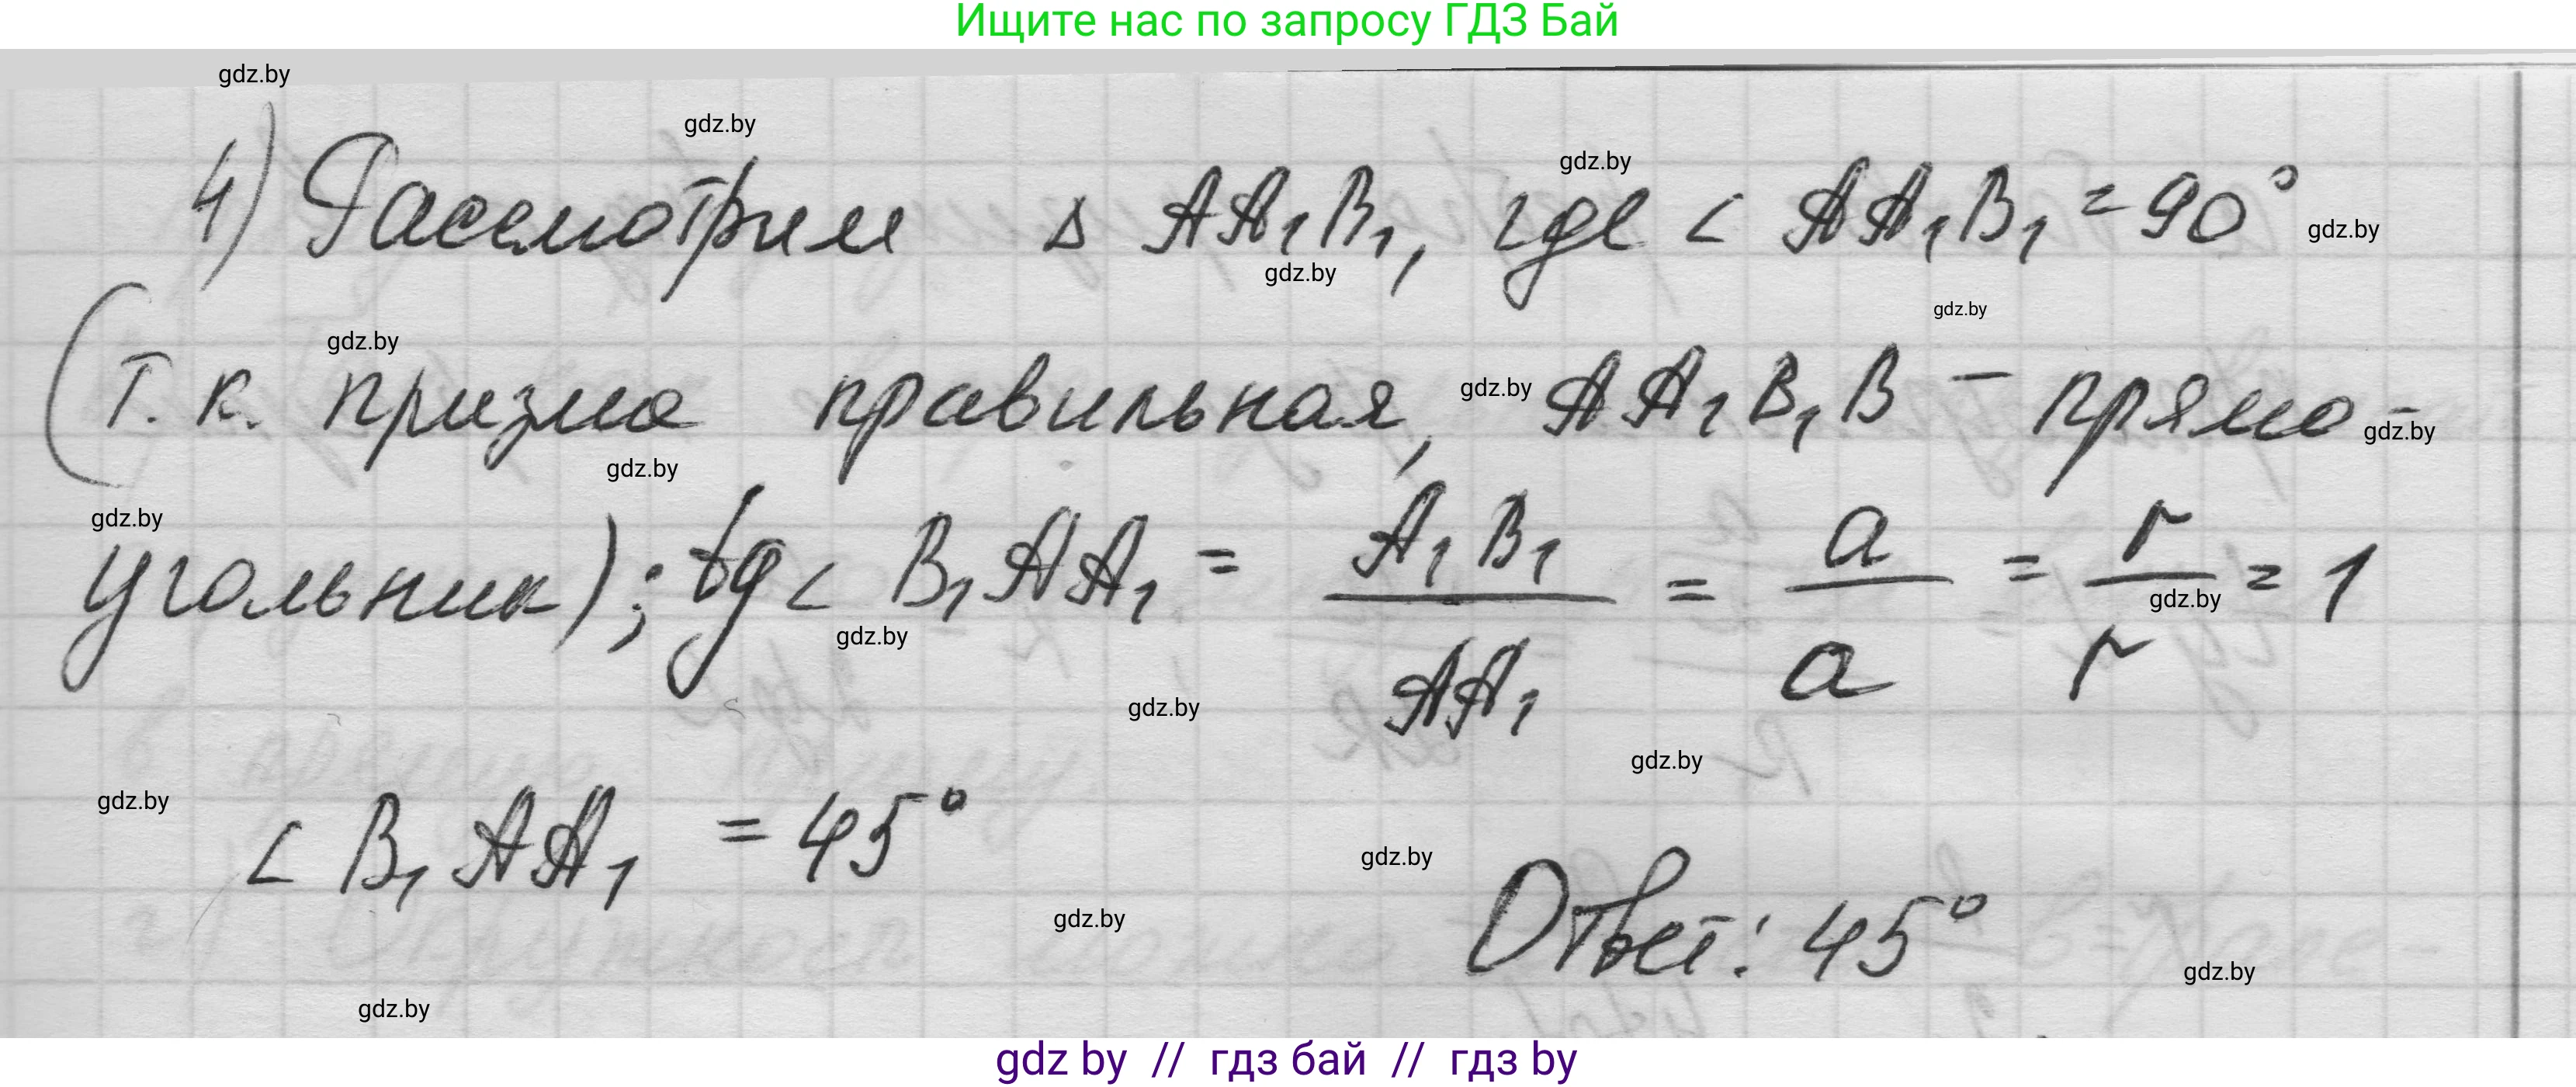 Ищите нас по запросу ГДЗ Бай
gdz.by
gdz.by
gdz.by
4) Рассмотрим Δ AA₁B₁, где < AA₁B₁ = 90°
gdz.by
gdz.by
gdz.by
gdz.by
(т. к. призма правильная, AA₁B₁B – прямо-
gdz.by
gdz.by
gdz.by
gdz.by
угольник); tg < B₁AA₁ = A₁B₁/AA₁ = a/a = r/r = 1
gdz.by
gdz.by
gdz.by
gdz.by
gdz.by
< B₁AA₁ = 45°
gdz.by
gdz.by
gdz.by
Ответ: 45°
gdz.by
gdz.by
gdz by // гдз бай // гдз by